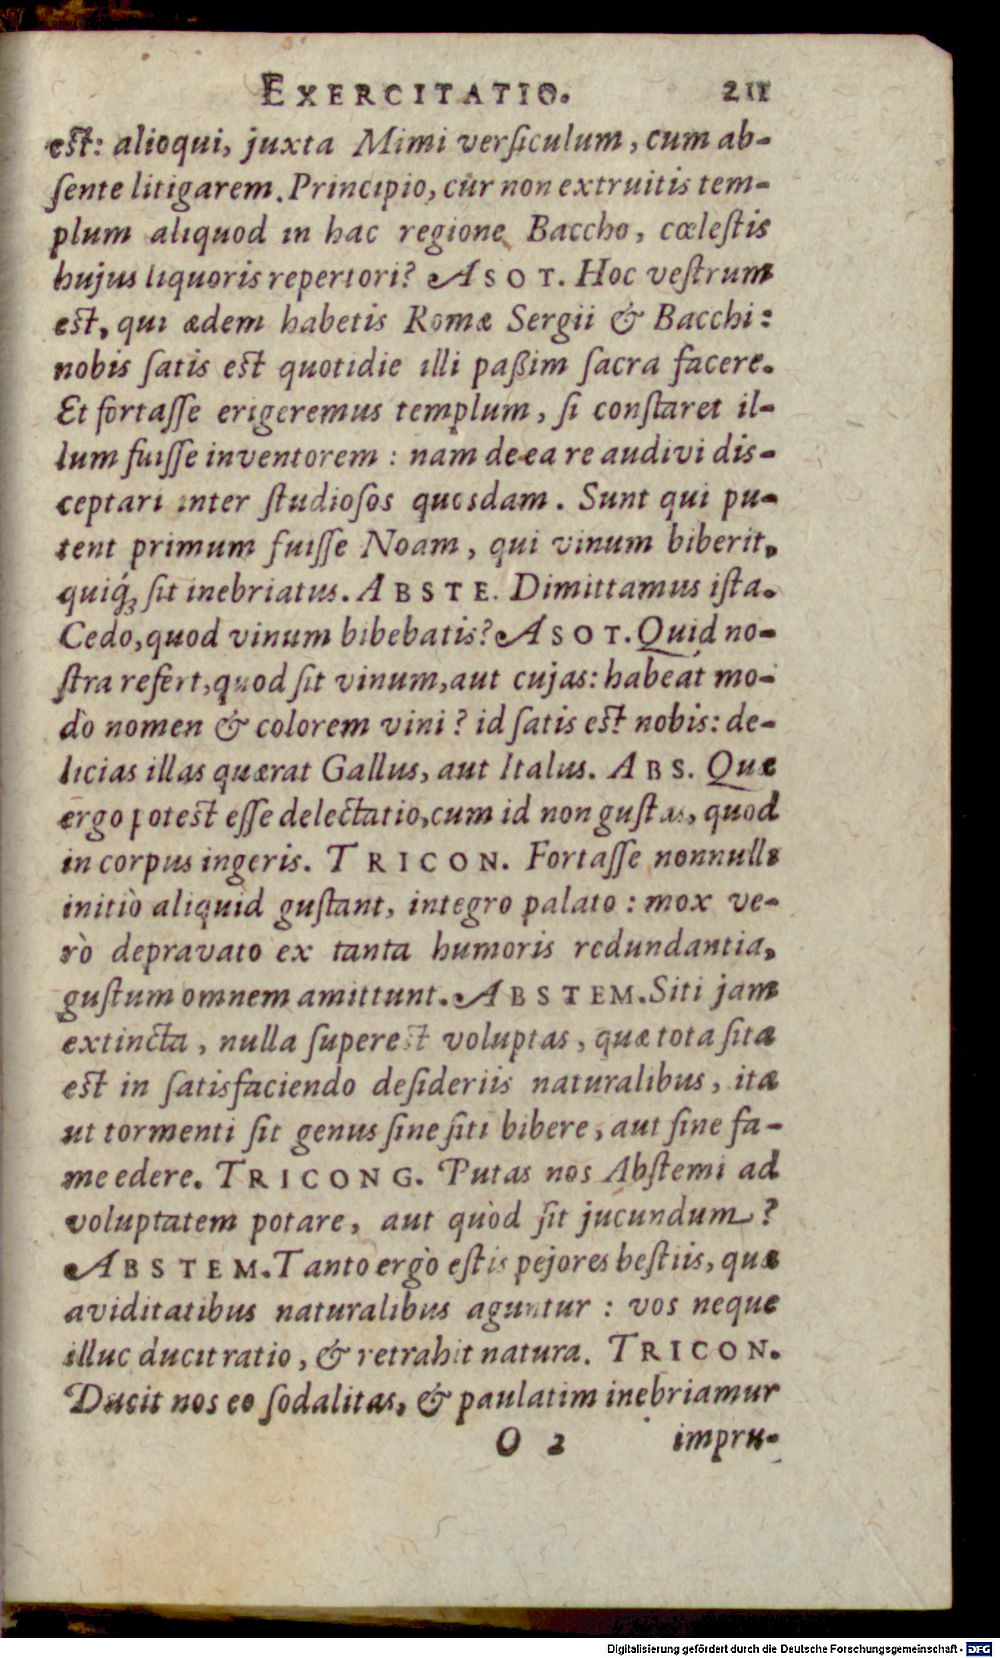 EXERCITATIO. 211
est: alioqui, juxta Mimi versiculum, cum ab-
sente litigarem. Principio, cur non extruitis tem-
plum aliquod in hac regione Baccho, cœlestis
hujus liquoris repertori? ASOT. Hoc vestrum
est, qui ædem habetis Romæ Sergii & Bacchi:
nobis satis est quotidie illi paßim sacra facere.
Et fortasse erigeremus templum, si constaret il-
lum fuisse inventorem : nam de ea re audivi dis-
ceptari inter studiosos quosdam. Sunt qui pu-
tent primum fuisse Noam, qui vinum biberit,
quiq́; sit inebriatus. ABSTE. Dimittamus ista.
Cedo, quod vinum bibebatis? ASOT. Quid no-
stra refert, quod sit vinum, aut cujas: habeat mo-
dò nomen & colorem vini? id satis est nobis: de-
licias illas quærat Gallus, aut Italus. ABS. Quæ
ergo potest esse delectatio, cum id non gustas, quod
in corpus ingeris. TRICON. Fortasse nonnulli
initiò aliquid gustant, integro palato : mox ve-
rò depravato ex tanta humoris redundantia,
gustum omnem amittunt. ABSTEM. Siti jam
extincta, nulla superest voluptas, quæ tota sita
est in satisfaciendo desideriis naturalibus, ita
ut tormenti sit genus sine siti bibere, aut sine fa-
me edere. TRICONG. Putas nos Abstemi ad
voluptatem potare, aut quòd sit jucundum?
ABSTEM. Tanto ergò estis pejores bestiis, quæ
aviditatibus naturalibus aguntur : vos neque
illuc ducit ratio, & retrahit natura. TRICON.
Ducit nos eo sodalitas, & paulatim inebriamur
O 2 impru-
Digitalisierung gefördert durch die Deutsche Forschungsgemeinschaft - DFG